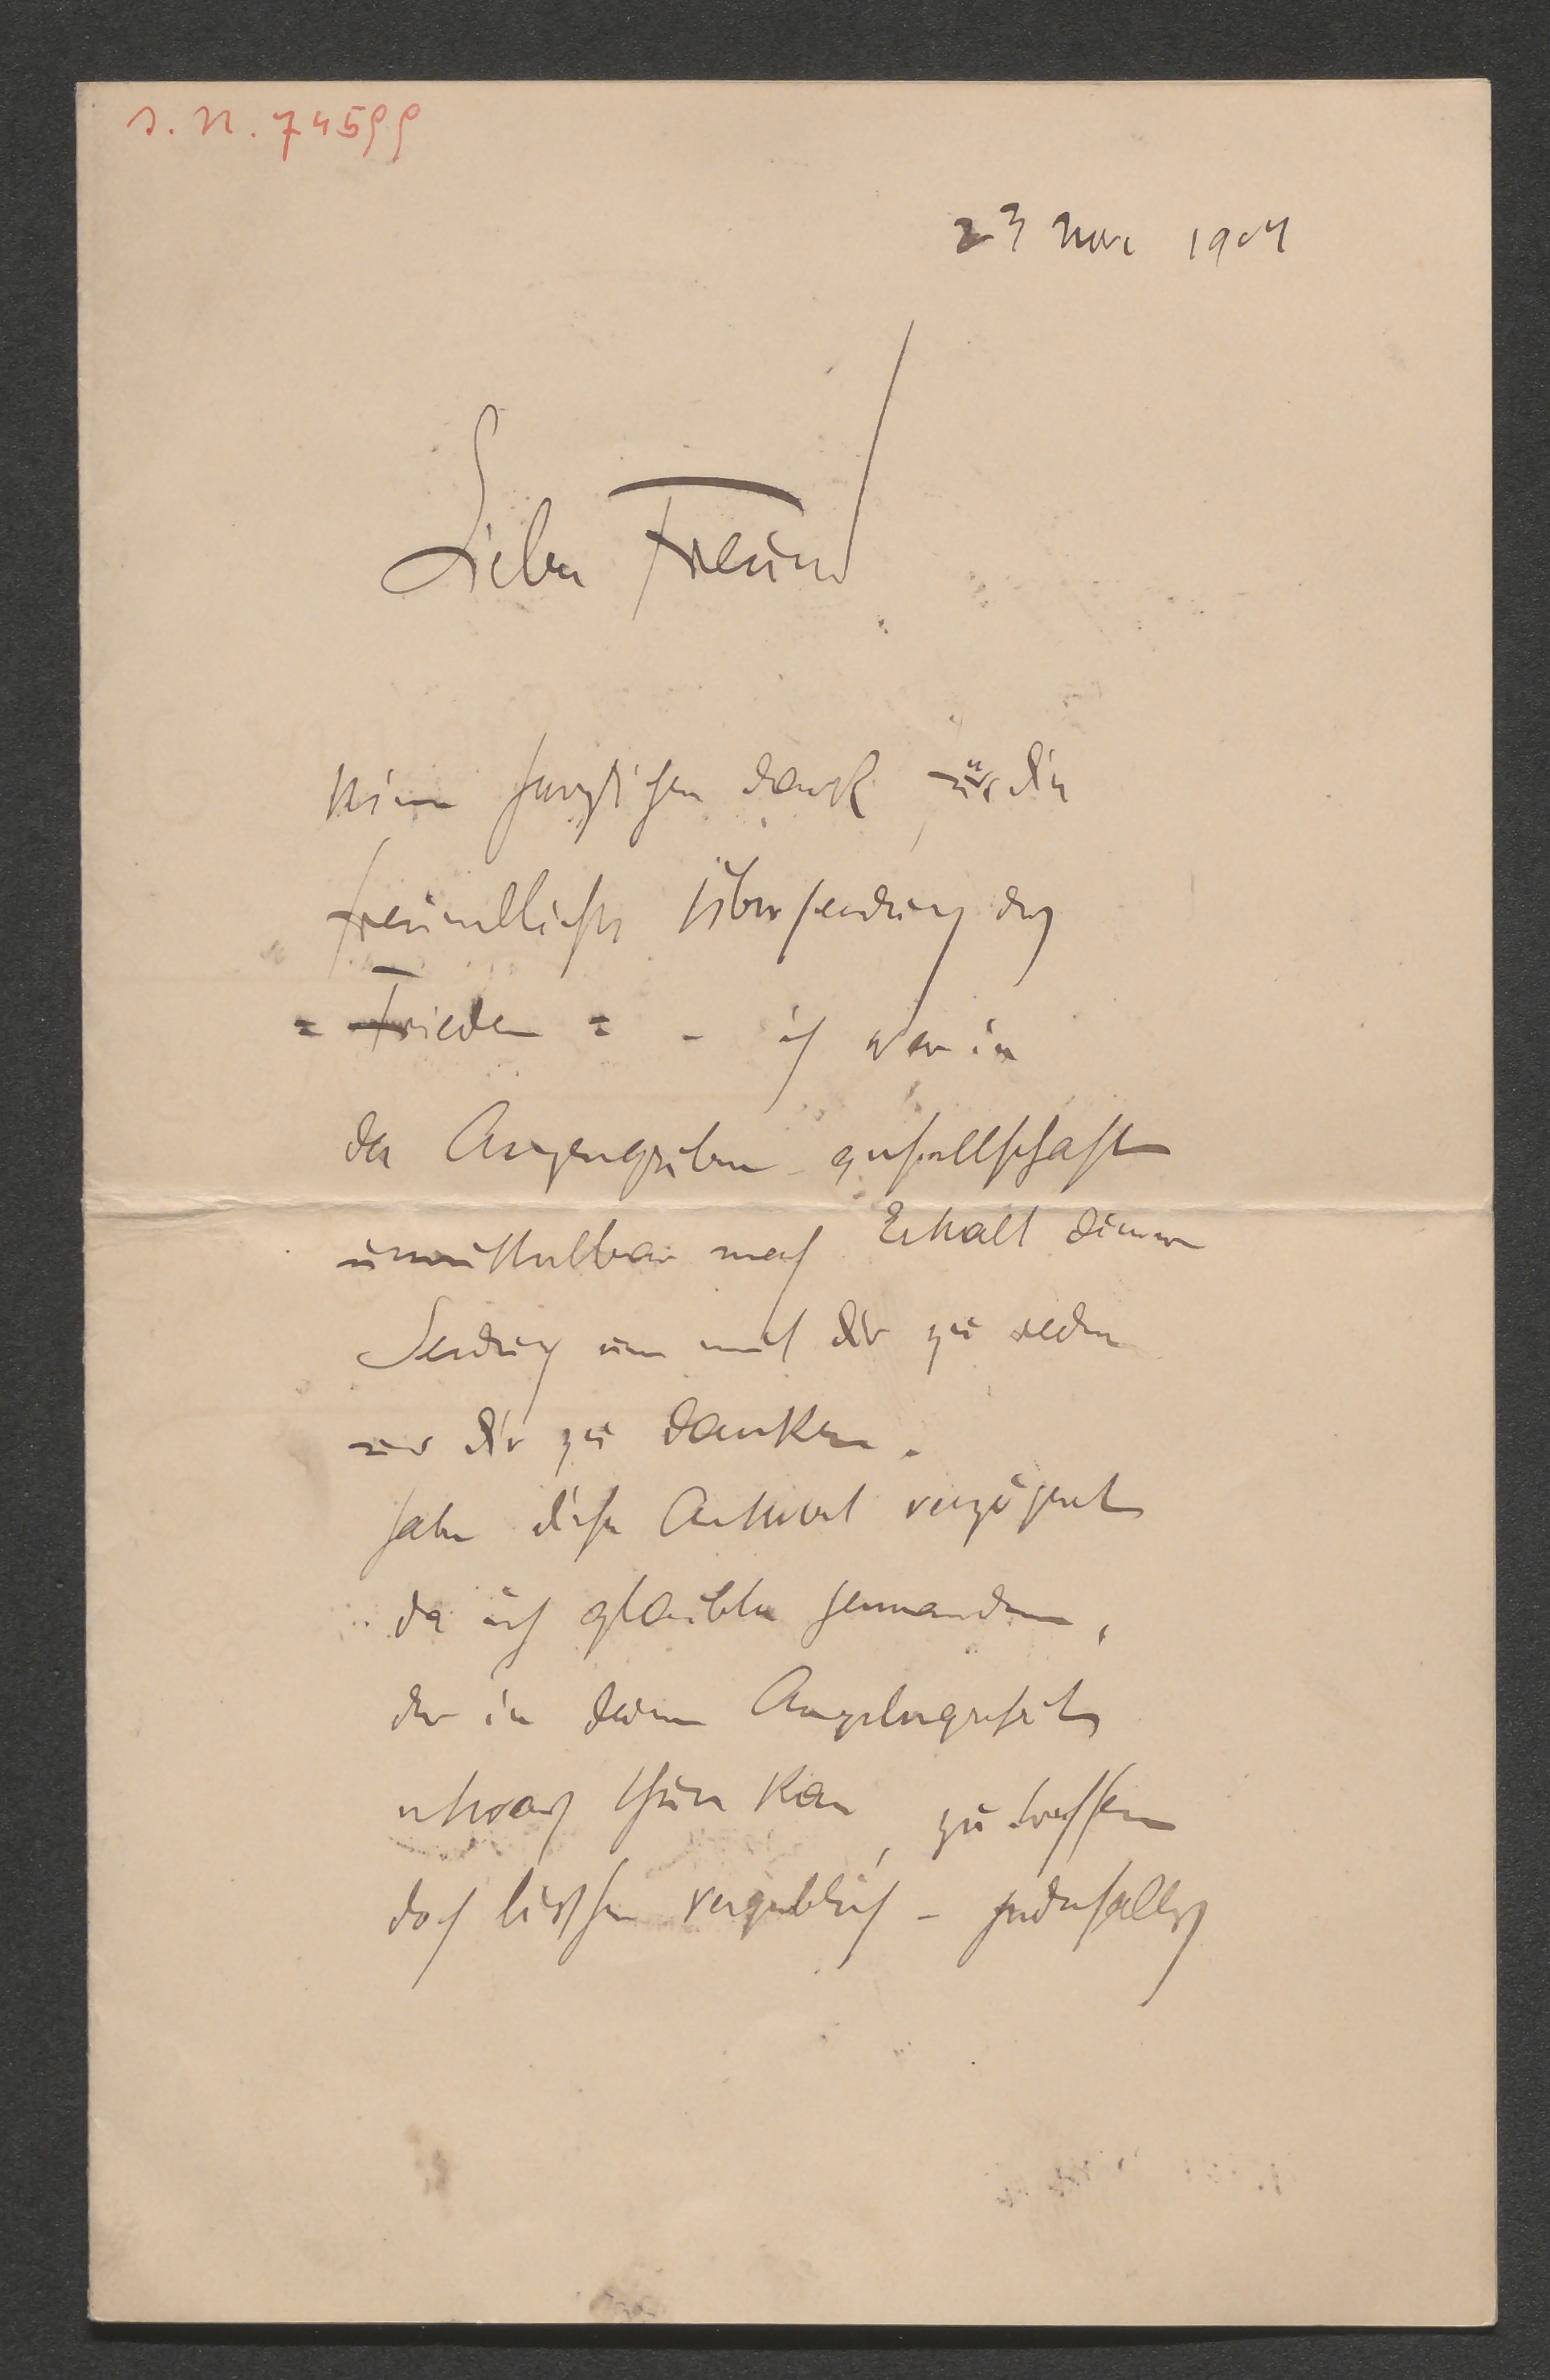 s. N. 74599
23 Nov 1904
Lieber Freund
Meinen herzlichen Dank für die
freundliche Übersendung des
= Frieden = - ich war in
der Anzengruber gesellschaft
unmittelbar nach Erhalt deiner
Sendung um mit dir zu reden
und dir zu danken.
habe diese Antwort verzögert
da ich glaubte jemanden,
der in deiner Angelegenheit
etwas thun kan, zu treffen
doch bisher vergeblich - jedenfalls